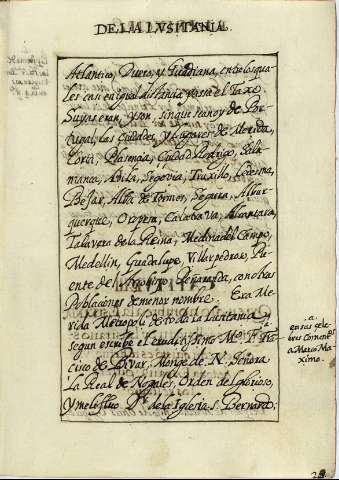 DE LA LVSITANIA.
Atlantico, Duero, y Guadiana, entre los qua-
les casi en igual distancia passa el Taxo.
Suyas eran, y son, sinque sean oy de Por-
tugal, las Ciudades, y Lugares de Merida,
Coria, Plasençia, Ciudad Rodrigo, Sala-
manca, Abila, Segovia, Truxillo, Ledesma,
Bejar, Alba de Tormes, Segura, Albur-
querque, Oropesa, Calatrava, Alcantara,
Talavera de la Reina, Medina del Campo,
Medellin, Guadalupe, Villarpedroso, Pu-
ente del Arçobispo, Peñaranda, con otras
Poblaciones de menor nombre. Era Me-
rida Metropoli de toda la Lusitania, y
segun escribe el eruditissimo Mº. F. Fran-
cisco de Bivar, Monge de N. Señora
la Real de Nogales, Orden del glorioso,
y melifluo Dr. de la Iglesia S. Bernardo;
a
en sus çele-
bres Comentºs
a Marco Ma-
ximo.